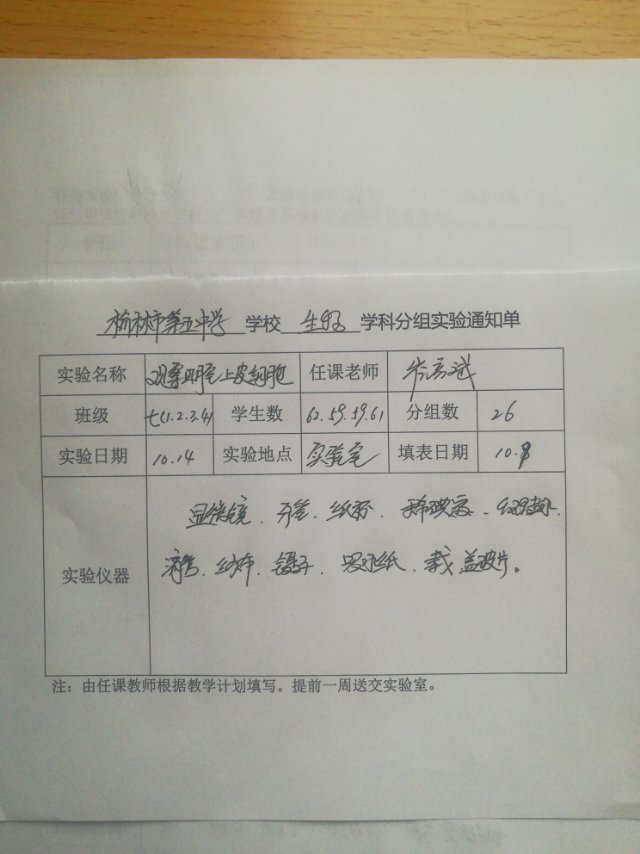 榆林市第五中学 学校 生物 学科分组实验通知单
实验名称 观察口腔上皮细胞 任课老师
班级 七(1.2.3.4) 学生数 62.59.59.61 分组数 26
实验日期 10.14 实验地点 实验室 填表日期 10.8
实验仪器 显微镜、牙签、纸杯、稀碘液、生理盐水、
滴管、纱布、镊子、吸水纸、载盖玻片。
注：由任课教师根据教学计划填写。提前一周送交实验室。